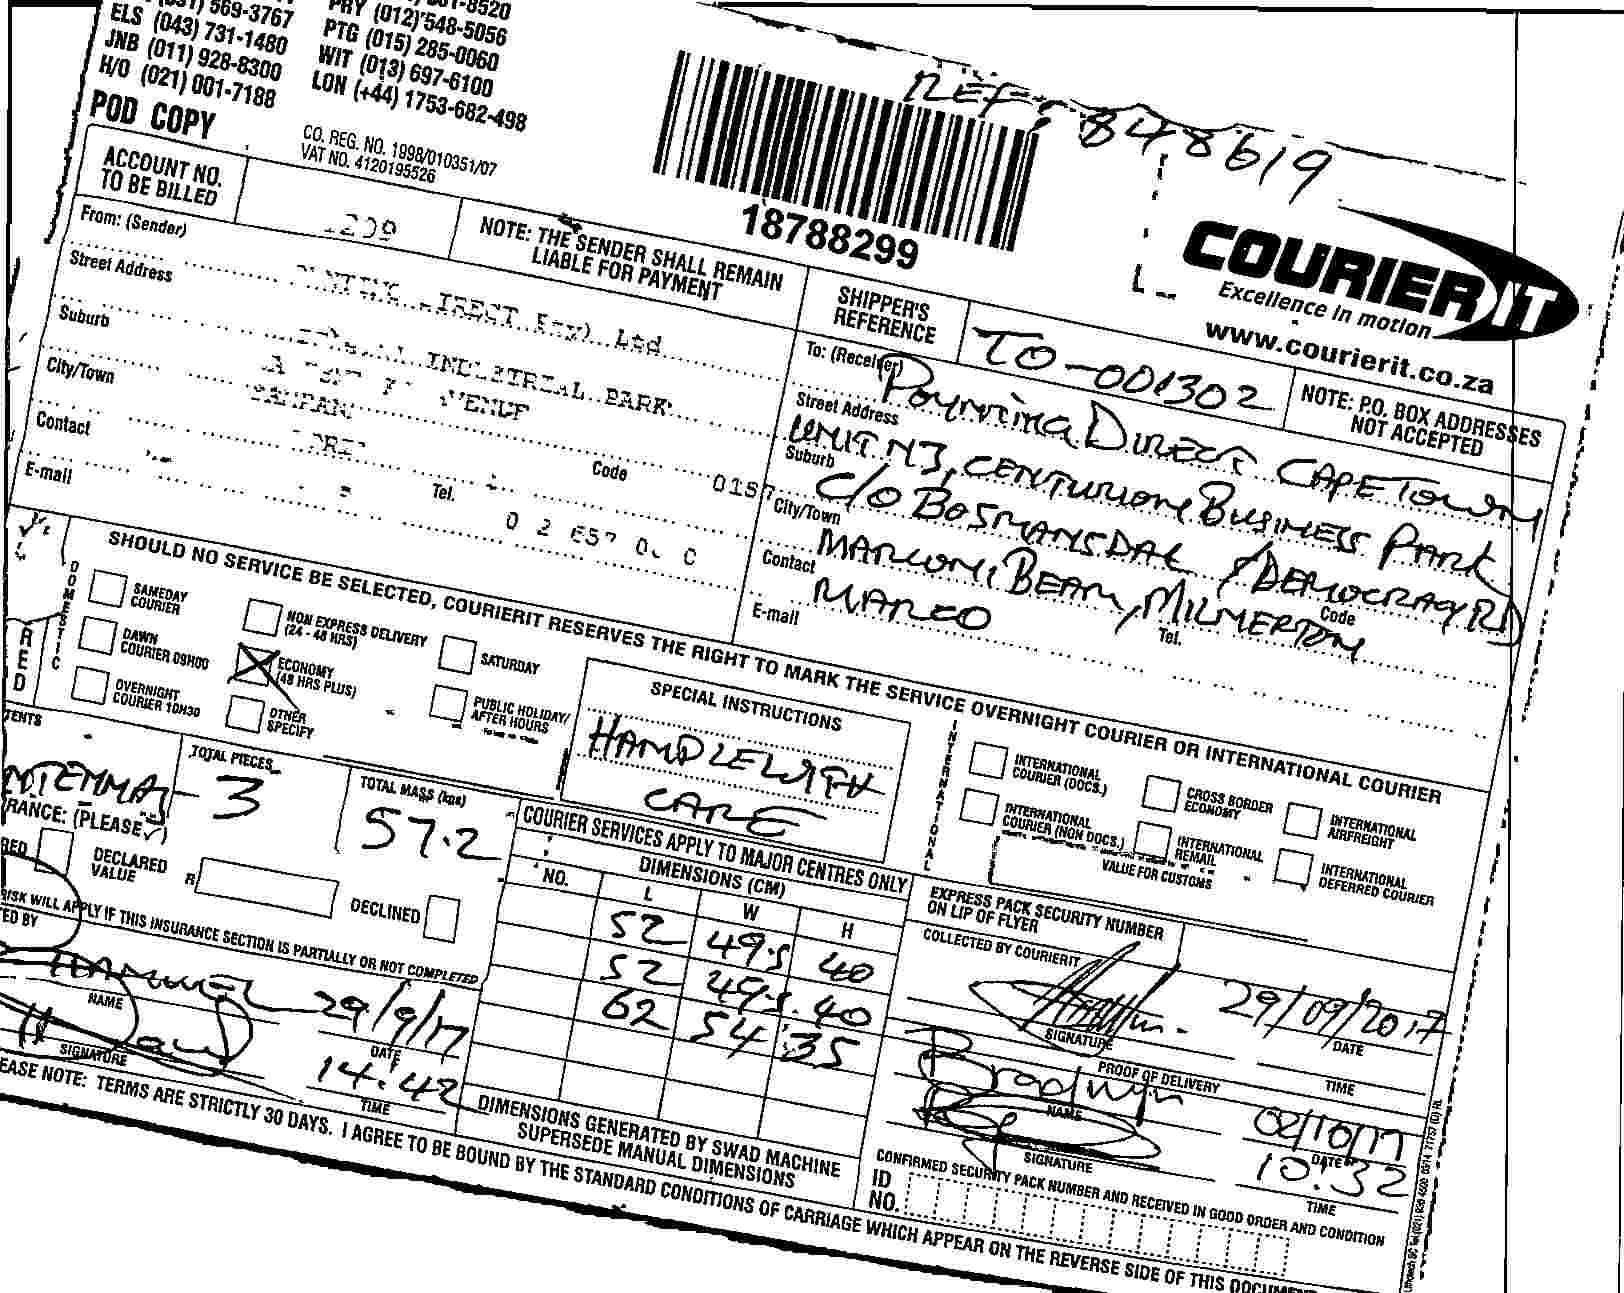 569-3767
ELS (043) 731-1480
JNB (011) 928-8300
H/O (021) 001-7188
PRY (012) 548-5056
PTG (015) 285-0060
WIT (013) 697-6100
LON (+44) 1753-682-498
POD COPY
CO. REG. NO. 1998/010351/07
VAT NO. 4120195526
REF: 848619
18788299
COURIERIT
Excellence in motion
www.courierit.co.za
ACCOUNT NO.
TO BE BILLED
NOTE: THE SENDER SHALL REMAIN
LIABLE FOR PAYMENT
SHIPPER'S
REFERENCE
TO-001302
NOTE: P.O. BOX ADDRESSES
NOT ACCEPTED
From: (Sender)
Street Address
Ltd
Suburb
INDUSTRIAL PARK
City/Town
AVENUE
Contact
Code
0157
E-mail
Tel.
To: (Receiver)
POYNTING DIRECT CAPE TOWN
Street Address
UNIT N3, CENTURION BUSINESS PARK
Suburb
C/O BOSMANSDAL / DEMOCRACY RD
City/Town
MARCONI BEAM, MILNERTON
Code
Contact
MARCO
Tel.
E-mail
SHOULD NO SERVICE BE SELECTED, COURIERIT RESERVES THE RIGHT TO MARK THE SERVICE OVERNIGHT COURIER OR INTERNATIONAL COURIER
DOMESTIC
SAMEDAY
COURIER
DAWN
COURIER 09H00
OVERNIGHT
COURIER 10H30
NON EXPRESS DELIVERY
(24 - 48 HRS)
ECONOMY
(48 HRS PLUS)
OTHER
SPECIFY
SATURDAY
PUBLIC HOLIDAY/
AFTER HOURS
SPECIAL INSTRUCTIONS
HANDLE WITH
CARE
INTERNATIONAL
INTERNATIONAL
COURIER (DOCS.)
INTERNATIONAL
COURIER (NON DOCS.)
CROSS BORDER
ECONOMY
INTERNATIONAL
REMAIL
INTERNATIONAL
AIRFREIGHT
INTERNATIONAL
DEFERRED COURIER
VALUE FOR CUSTOMS
TOTAL PIECES
3
TOTAL MASS (kgs)
57.2
RANCE: (PLEASE ✓)
DECLARED
VALUE
R
DECLINED
RISK WILL APPLY IF THIS INSURANCE SECTION IS PARTIALLY OR NOT COMPLETED
COURIER SERVICES APPLY TO MAJOR CENTRES ONLY
DIMENSIONS (CM)
NO. L W H
52 49.5 40
52 49.5 40
62 54 35
DIMENSIONS GENERATED BY SWAD MACHINE
SUPERSEDE MANUAL DIMENSIONS
NAME
29/9/17
DATE
SIGNATURE
14:42
TIME
EXPRESS PACK SECURITY NUMBER
ON LIP OF FLYER
COLLECTED BY COURIERIT
29/09/2017
SIGNATURE
DATE
PROOF OF DELIVERY
TIME
Bradwyn
NAME
02/10/17
DATE
SIGNATURE
10:32
TIME
CONFIRMED SECURITY PACK NUMBER AND RECEIVED IN GOOD ORDER AND CONDITION
ID
NO.
EASE NOTE: TERMS ARE STRICTLY 30 DAYS. I AGREE TO BE BOUND BY THE STANDARD CONDITIONS OF CARRIAGE WHICH APPEAR ON THE REVERSE SIDE OF THIS DOCUMEN